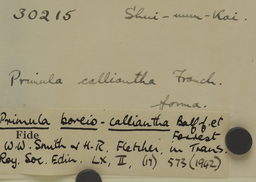 30215 Shui-mun-Kai.
Primula calliantha Franch.
forma.
Primula boreio-calliantha Balf. f. et
Fide Forrest
W.W. Smith & H.R. Fletcher, in Trans.
Roy. Soc. Edin. LX, II, (17) 573 (1942)